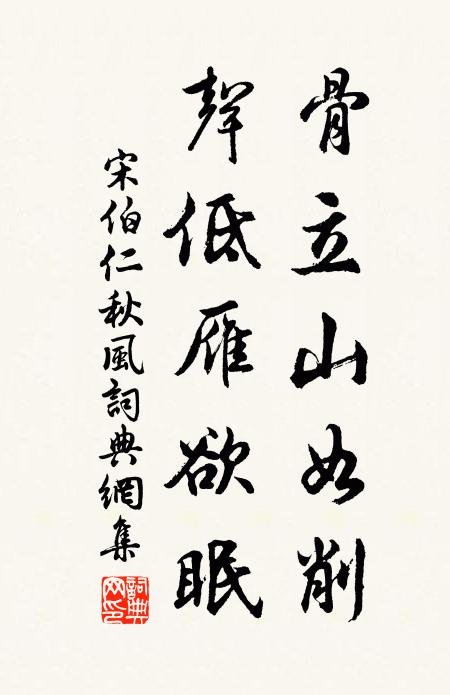 骨立山如削
聲低雁欲眠
宋伯仁秋風詞典網集
詞典網印